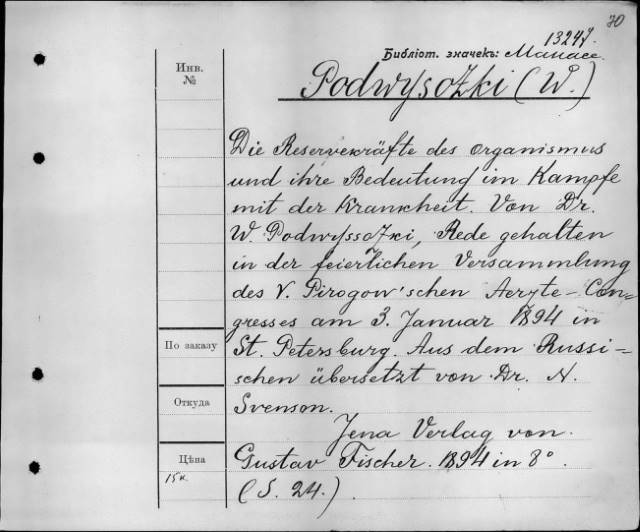 70
13247.
Библіот. значекъ: Манасс.
Podwysozki (W.)
Инв.
№
Die Reservekräfte des Organismus
und ihre Bedeutung im Kampfe
mit der Krankheit. Von Dr.
W. Podwyssozki, Rede gehalten
in der feierlichen Versammlung
des V. Pirogow'schen Aerzte-Con-
gresses am 3. Januar 1894 in
По заказу
St. Petersburg. Aus dem Russi-
schen übersetzt von Dr. N.
Откуда
Svenson.
Jena Verlag von
Цѣна
Gustav Fischer. 1894 in 8°.
15 к.
(S. 24.)